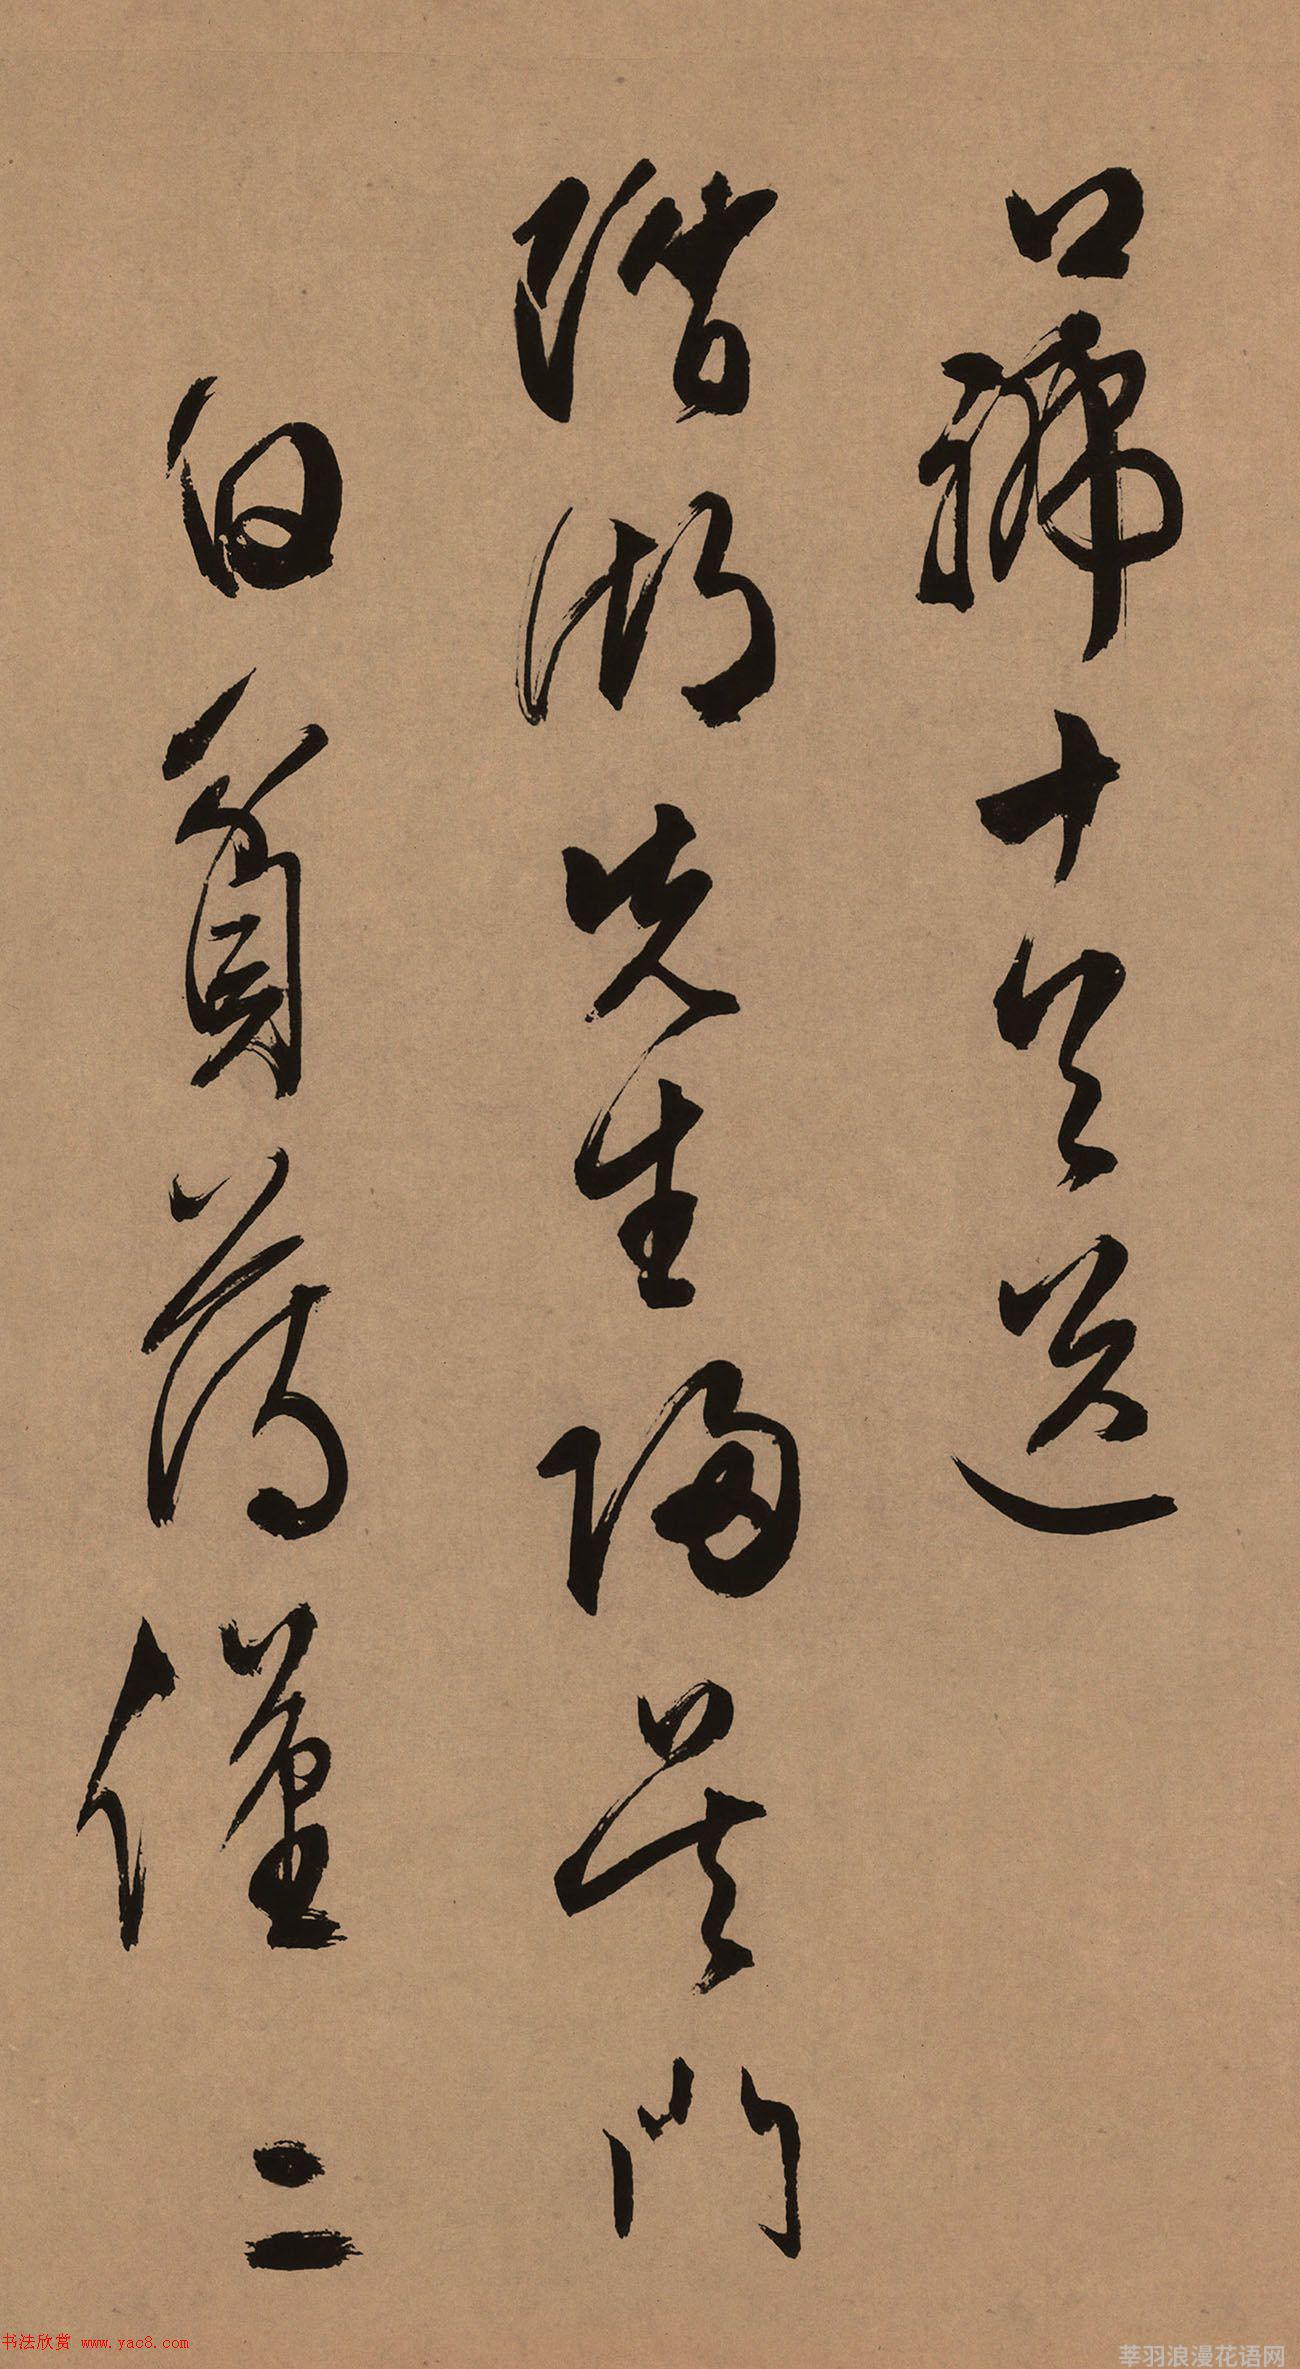 口號十首送
階湖先生歸吳門
白貧蕩僅二
书法欣赏 www.yac8.com
莘羽浪漫花语网